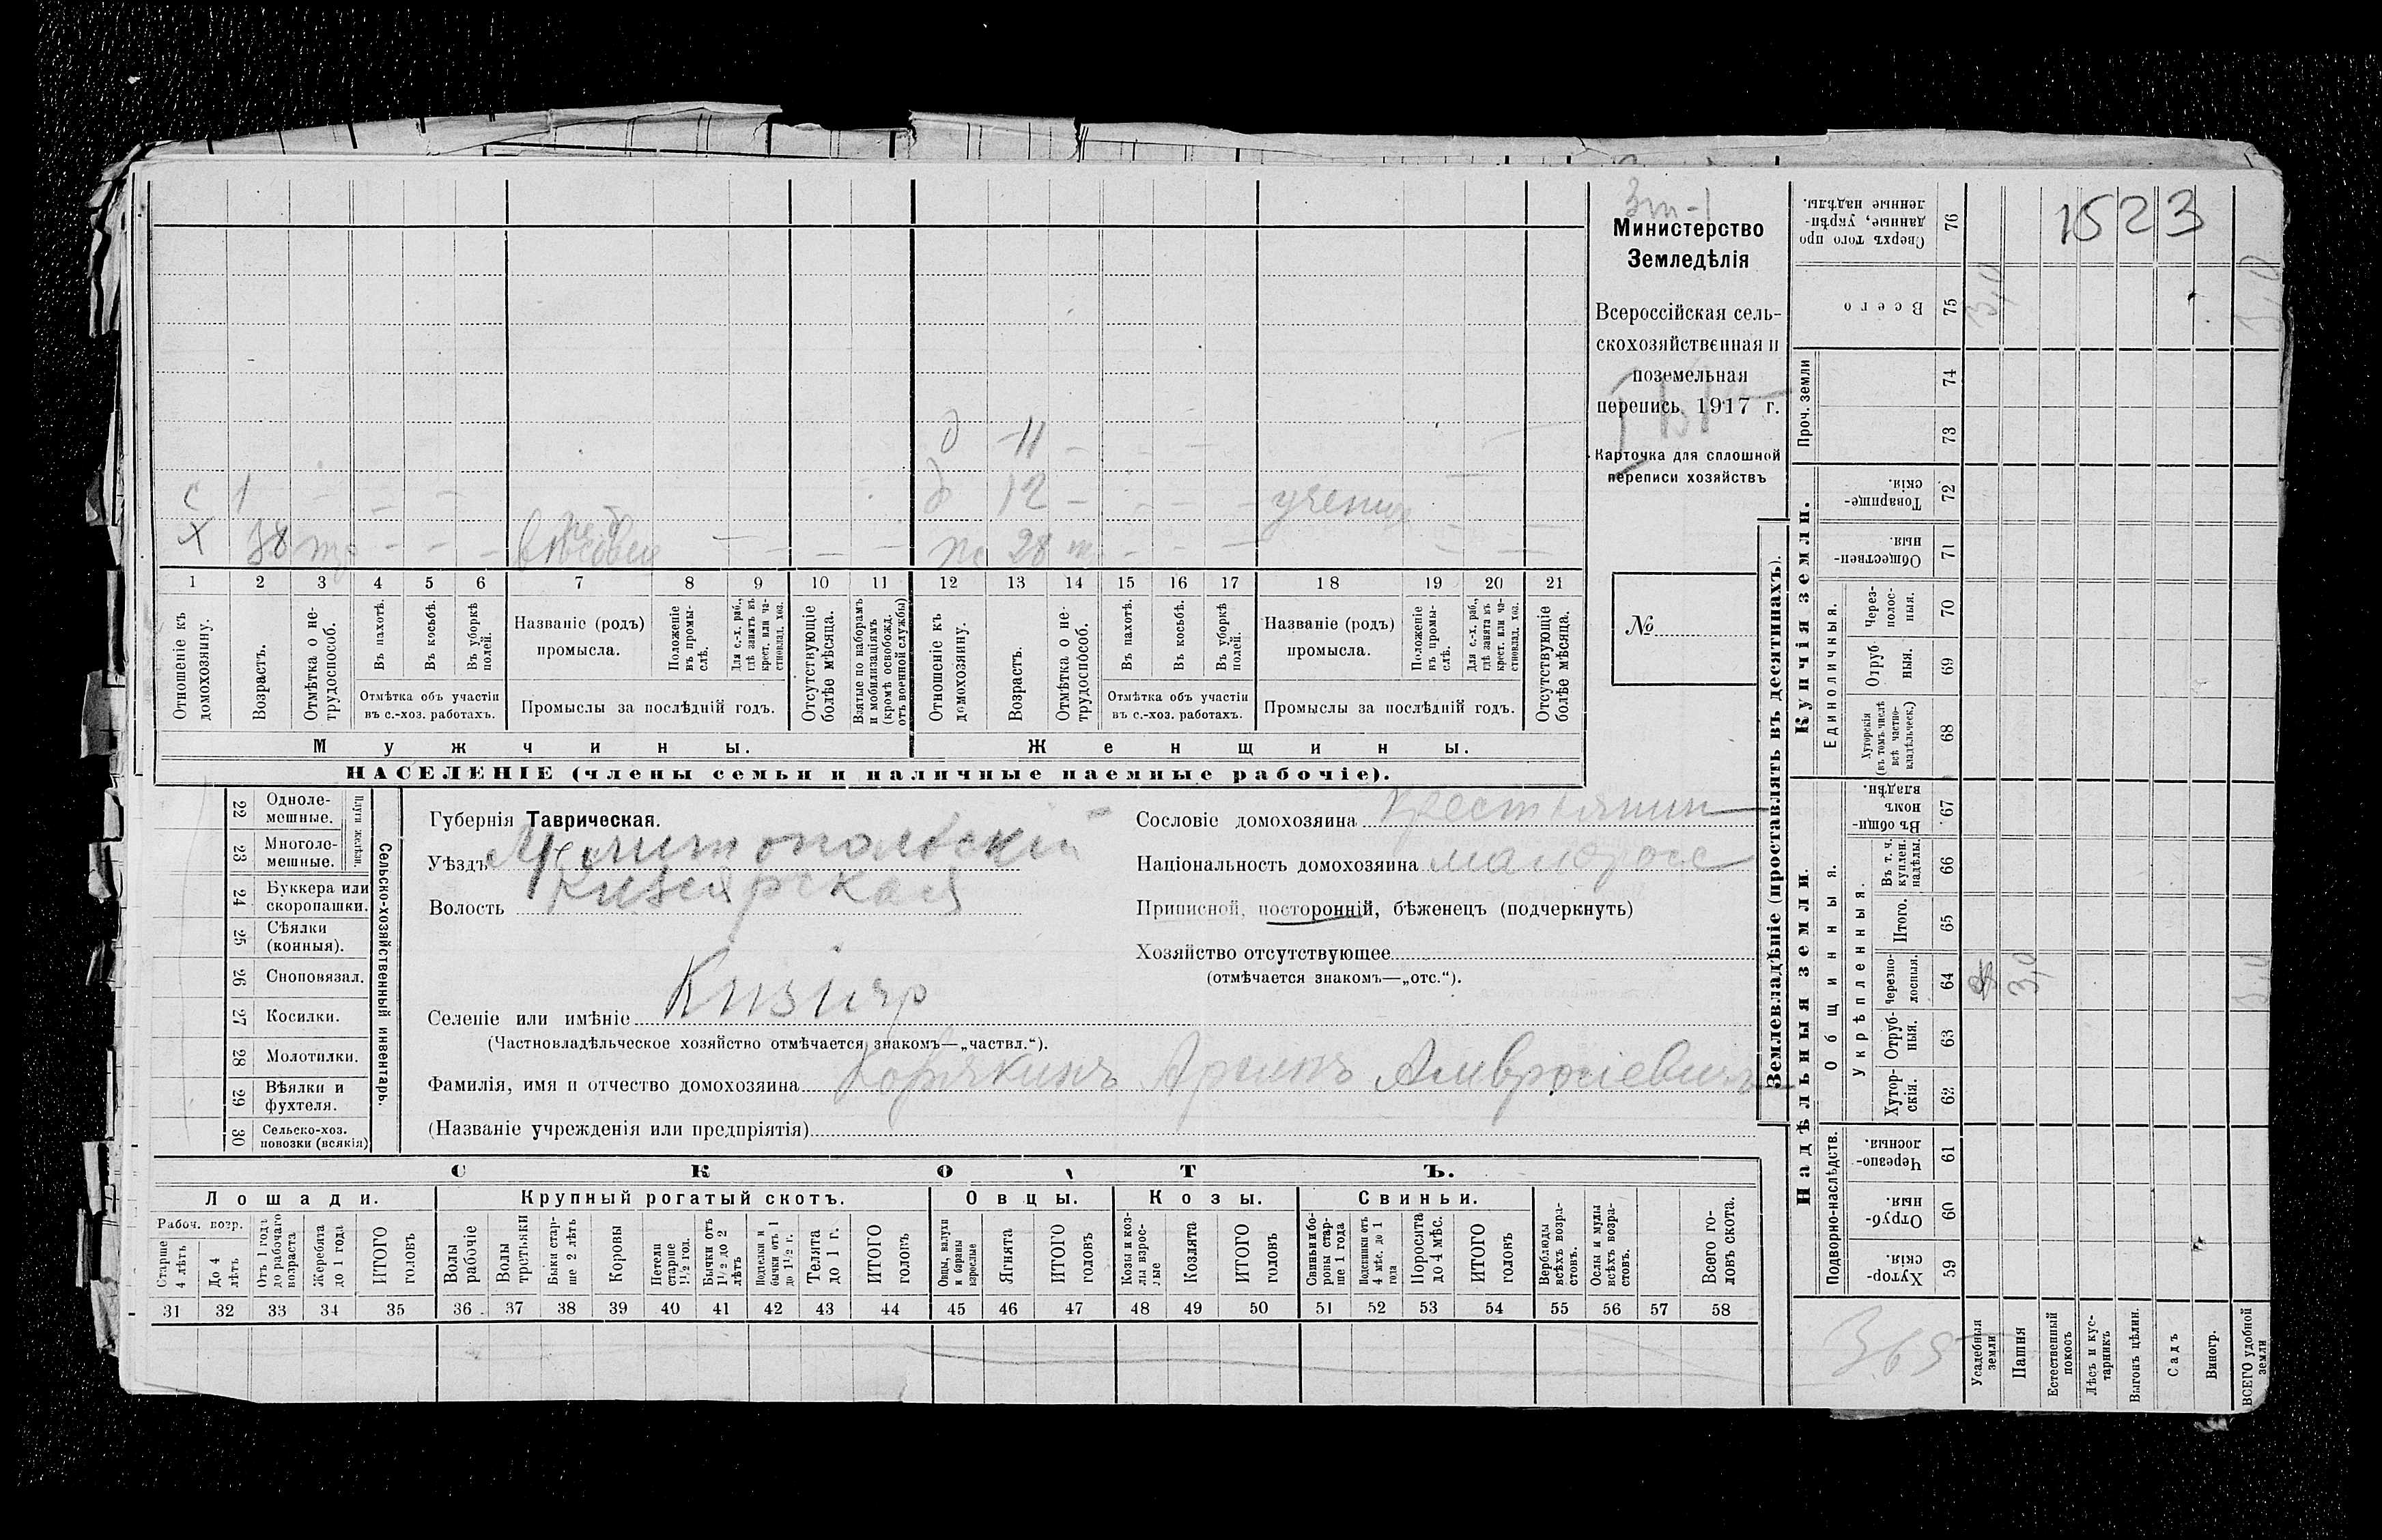 1523
Министерство
Земледѣлія
Всероссійская сель-
скохозяйственная и
поземельная
перепись 1917 г.
Карточка для сплошной
переписи хозяйствъ
№
д 11 - - - -
с 1 - - - - д 12 - - - - ученица - -
Х 38 - - - ж 28 - - - - -
1 2 3 4 5 6 7 8 9 10 11 12 13 14 15 16 17 18 19 20 21
Отношеніе къ домохозяину.
Возрастъ.
Отмѣтка о не-трудоспособ.
Въ пахотѣ.
Въ косьбѣ.
Въ уборкѣ полей.
Отмѣтка объ участіи
въ с.-хоз. работахъ.
Названіе (родъ)
промысла.
Положеніе въ промы-слѣ.
Для с.-х. раб., гдѣ занятъ въ крест. или ча-стновлад. хоз.
Промыслы за послѣдній годъ.
Отсутствующіе болѣе мѣсяца.
Взятые по наборамъ и мобилизаціямъ (кромѣ освобожд. отъ военной службы)
Отношеніе къ домохозяину.
Возрастъ.
Отмѣтка о не-трудоспособ.
Въ пахотѣ.
Въ косьбѣ.
Въ уборкѣ полей.
Отмѣтка объ участіи
въ с.-хоз. работахъ.
Названіе (родъ)
промысла.
Положеніе въ промы-слѣ.
Для с.-х. раб., гдѣ занята въ крест. или ча-стновлад. хоз.
Промыслы за послѣдній годъ.
Отсутствующіе болѣе мѣсяца.
Мужчины.
Женщины.
НАСЕЛЕНІЕ (члены семьи и наличные наемные рабочіе).
22 Одноле-мешные.
23 Многоле-мешные.
Плуги желѣзн.
24 Буккера или скоропашки.
25 Сѣялки (конныя).
26 Сноповязал.
27 Косилки.
28 Молотилки.
29 Вѣялки и фухтеля.
30 Сельско-хоз. повозки (всякія)
Сельско-хозяйственный инвентарь.
Губернія Таврическая.
Уѣздъ Мелитопольскій
Волость Кизіярская
Селеніе или имѣніе Кизіяр
(Частновладѣльческое хозяйство отмѣчается знакомъ—„частвл.“).
Фамилія, имя и отчество домохозяина Амвросіевичъ
(Названіе учрежденія или предпріятія)
Сословіе домохозяина крестьянин
Національность домохозяина малоросс
Приписной, посторонній, бѣженецъ (подчеркнуть)
Хозяйство отсутствующее
(отмѣчается знакомъ—„отс.“).
СКОТЪ.
Лошади.
Крупный рогатый скотъ.
Овцы.
Козы.
Свиньи.
Рабоч. возр.
Старше 4 лѣтъ
До 4 лѣтъ
Отъ 1 года до рабочаго возраста
Жеребята до 1 года
ИТОГО головъ
Волы рабочіе
Волы третьяки
Быки стар-ше 2 лѣтъ
Коровы
Нетели старше 1½ год.
Бычки отъ 1½ до 2 лѣтъ
Подтелки и бычки отъ 1 до 1½ г.
Телята до 1 г.
ИТОГО головъ
Овцы, валухи и бараны взрослые
Ягнята
ИТОГО головъ
Козы и коз-лы взрос-лые
Козлята
ИТОГО головъ
Свиньи и бо-ровы стар-ше 1 года
Подсвинки отъ 4 мѣс. до 1 года
Поросята до 4 мѣс.
ИТОГО головъ
Верблюды всѣхъ возра-стовъ.
Ослы и мулы всѣхъ возра-стовъ.
Всего го-ловъ скота.
31 32 33 34 35 36 37 38 39 40 41 42 43 44 45 46 47 48 49 50 51 52 53 54 55 56 57 58
Землевладѣніе (проставлять въ десятинахъ).
Купчія земли.
Надѣльныя земли.
Сверхъ того про данные, укрѣп-ленные надѣлы. 76
Всего 75 3,0 3,0
Проч. земли 74
73
Товарище-скія. 72
Обществен-ныя. 71
Единоличныя.
Через-полос-ныя. 70
Отруб-ныя. 69
Хуторскія (въ томъ числѣ всѣ частно-владѣльческ.) 68
Общинныя.
Въ общин-номъ владѣн. 67
Укрѣпленныя.
Въ т. ч. куплен. надѣлы. 66
Итого. 65
Черезпо-лосныя. 64 3,0 3,0
Отруб-ныя. 63
Хутор-скія. 62
Подворно-наслѣдств.
Черезпо-лосныя. 61
Отруб-ныя. 60
Хутор-скія. 59
365
Усадебныя земли
Пашня
Естественный покосъ
Лѣсъ и кус-тарникъ
Выгонъ цѣлин.
Садъ
Виногр.
ВСЕГО удобной земли